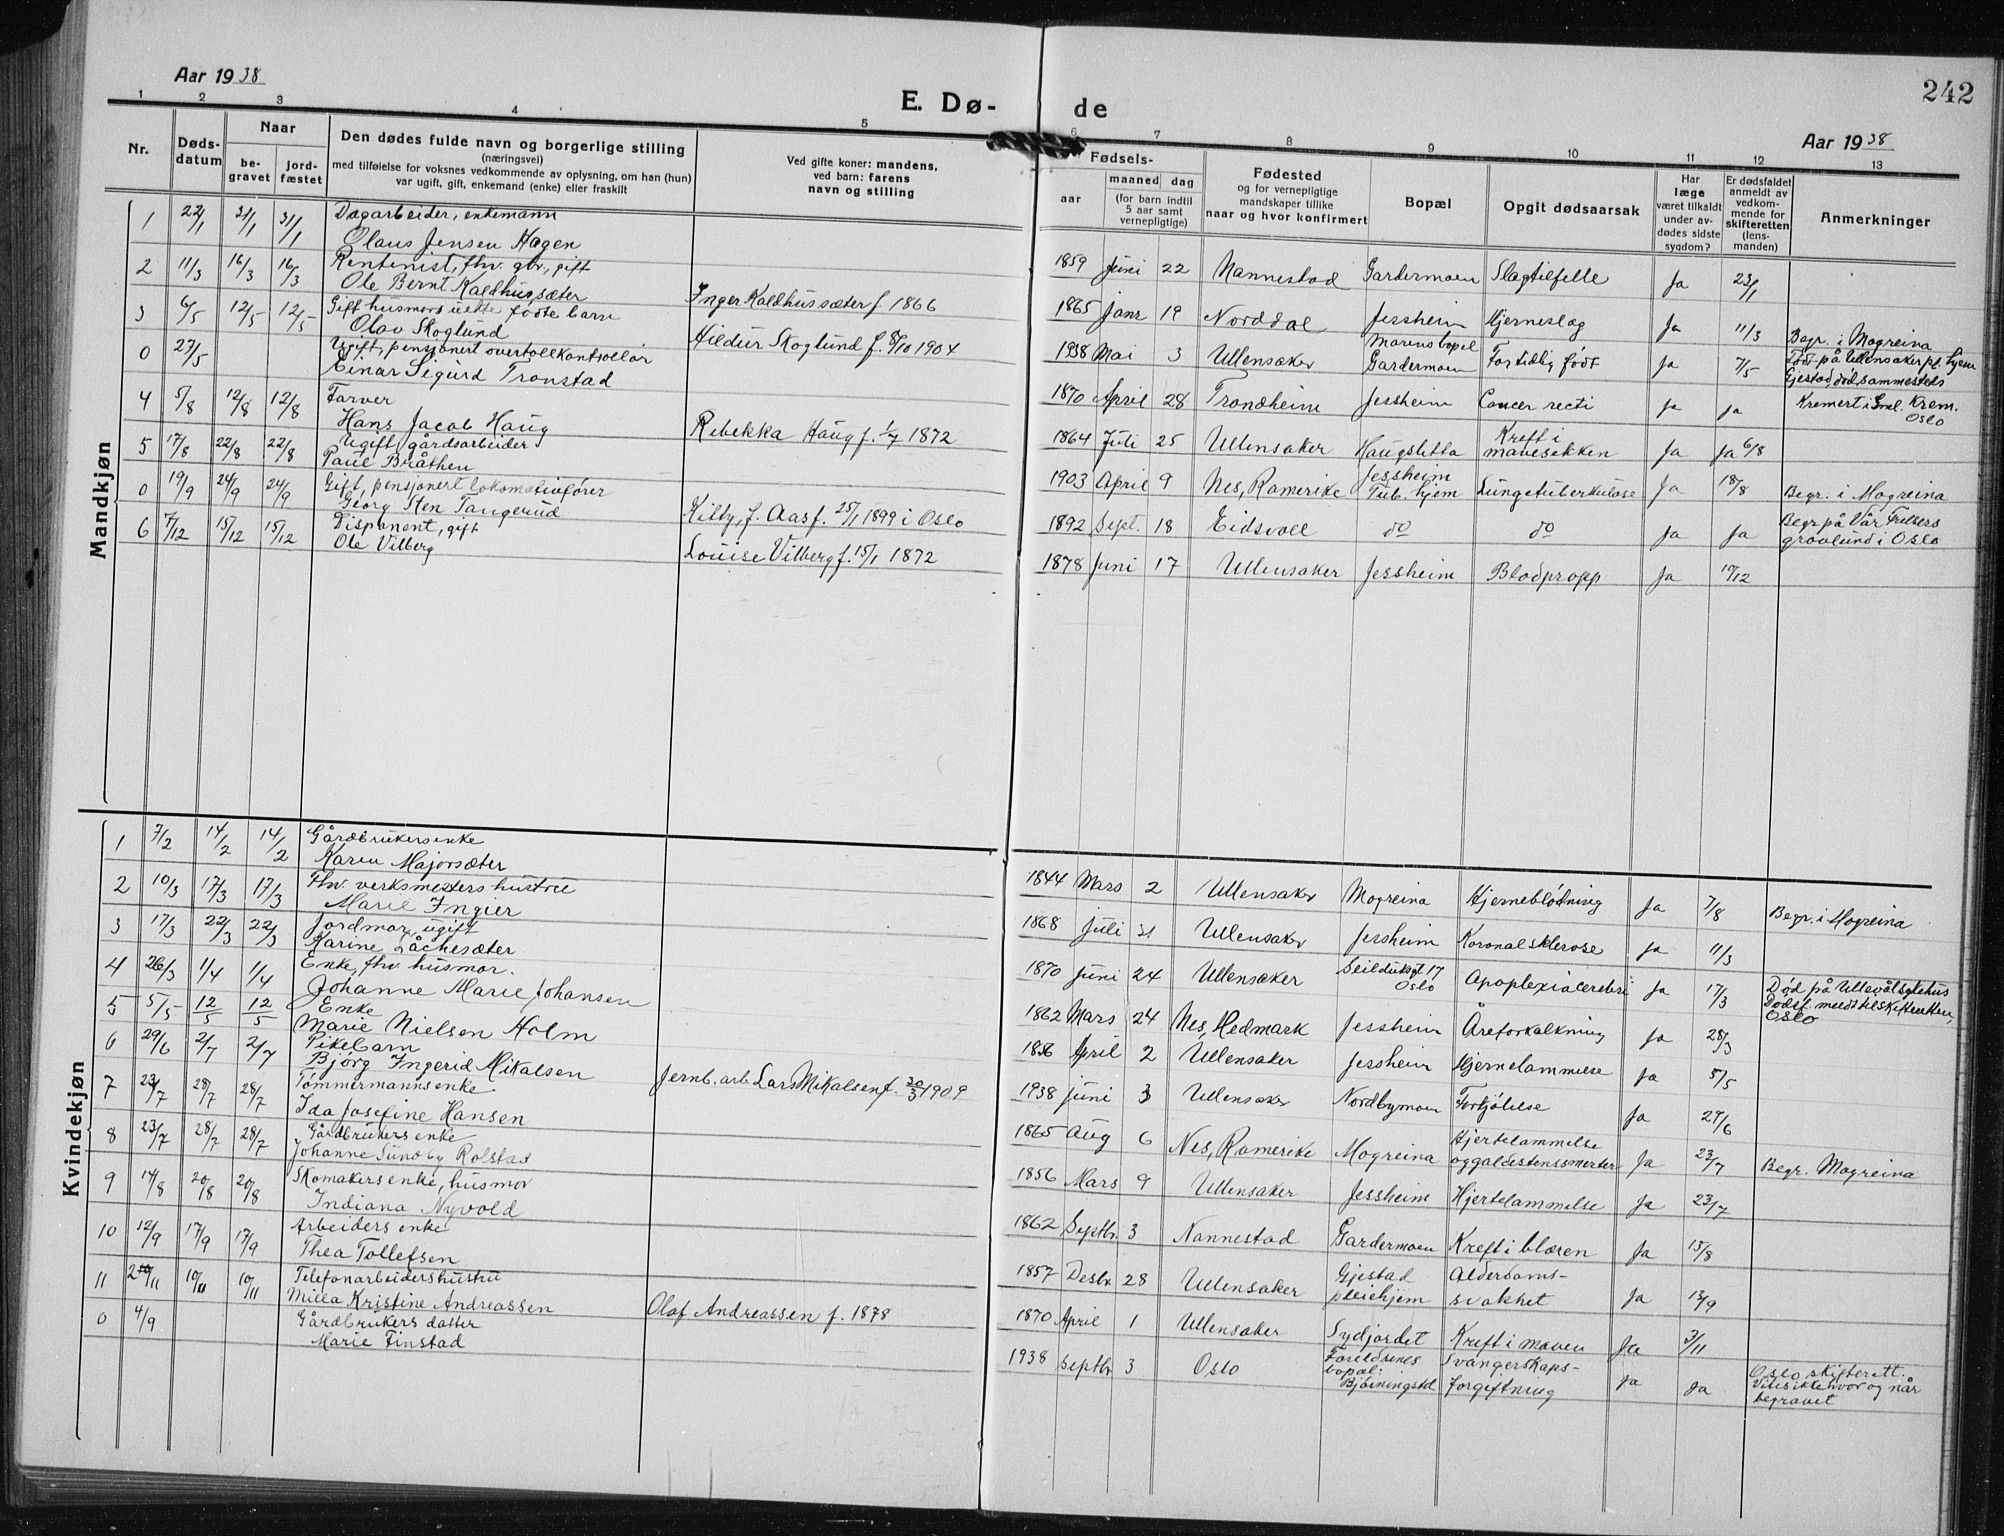 Aar 1938
E. Dø-
de
242
Aar 1938
1 2 3 4 5 6 7 8 9 10 11 12 13
Nr.
Døds-
datum
Naar
be-
gravet
jord-
fæstet
Den dødes fulde navn og borgerlige stilling
(næringsvei)
med tilføielse for voksnes vedkommende av oplysning, om han (hun)
var ugift, gift, enkemand (enke) eller fraskilt
Ved gifte koner: mandens,
ved barn: farens
navn og stilling
Fødsels-
aar
maaned dag
(for barn indtil
5 aar samt
vernepligtige)
Fødested
og for vernepligtige
mandskaper tillike
naar og hvor konfirmert
Bopæl
Opgit dødsaarsak
Har
læge
været tilkaldt
under av-
dødes sidste
sygdom?
Er dødsfaldet
anmeldt av
vedkom-
mende for
skifteretten
(lens-
manden)
Anmerkninger
Mandkjøn
1 22/1 31/1 31/1 Dagarbeider, enkemann
Olaus Jensen Hagen
1859 Juni 22 Nannestad Gardermoen Slagtilfelle Ja 23/1
2 11/3 16/3 16/3 Rentenist, fhv. gbr., gift
Ole Bernt Kaldhussæter Inger Kaldhussæter f. 1866
1865 Janr 19 Norddal Jessheim Hjerneslag Ja 11/3
3 6/5 12/5 12/5 Gift husmors uekte fødte barn
Olav Skoglund Hildur Skoglund f. 8/10 1904
1938 Mai 3 Ullensaker Morens bopel
Gardermoen For tidlig født Ja 7/5 Begr. i Mogreina
Død på Ullensaker pl. hjem
Gjestad død sammesteds
0 27/5 Ugift, pensjonert overtollkontrollør
Einar Sigurd Tronstad
1870 April 28 Trondheim Jessheim Cancer recti Ja Ja Kremert i Gml. Krem.
Oslo
4 5/8 12/8 12/8 Farver
Hans Jacob Haug Rebekka Haug f. 1/7 1872
1864 Juli 25 Ullensaker Haugslitta Kreft i
mavesekken Ja Ja 6/8
5 17/8 22/8 22/8 Ugift gårdsarbeider
Paul Bråthen
1903 April 9 Nes, Romerike Jessheim
Tub. hjem Lungetuberkulose Ja 18/8 Begr. i Mogreina
0 19/9 24/9 24/9 Gift, pensjonert lokomotivfører
Georg Sten Tangerud Kitty, f. Aas f. 25/1 1899 i Oslo
1892 Sept. 18 Eidsvoll do do Ja Ja Begr på Vår Frelsers
gravlund i Oslo
6 7/12 15/12 15/12 Disponent, gift
Ole Vilberg Louise Vilberg f. 15/1 1872
1878 Juni 17 Ullensaker Jessheim Blodpropp Ja 10/12
Kvindekjøn
1 7/2 14/2 14/2 Gårdbrukersenke
Karen Majorsæter
1844 Mars 2 Ullensaker Mogreina Hjerneblødning Ja 7/8 Begr. i Mogreina
2 10/3 17/3 17/3 Fhv. verksmesters hustru
Marie Ingier
1868 Juli 31 Ullensaker Jessheim Koronalsklerose Ja 11/3
3 17/3 22/3 22/3 Jordmor, ugift
Karine Låchesæter
1870 Juni 24 Ullensaker Seilduksgt 17
Oslo Apoplexia cerebri Ja 17/3 Død på Ullevål sykehus
Dødsf. meldt til skifteretten,
Oslo
4 26/3 1/4 1/4 Enke, fhv. husmor.
Johanne Marie Johansen
1862 Mars 24 Nes, Hedmark Jessheim Åreforkalkning Ja 28/3
5 5/5 12/5 12/5 Enke
Marie Nielsen Holm
1856 April 2 Ullensaker Jessheim Hjernelammelse Ja 5/5
6 29/6 2/7 2/7 Pikebarn
Bjørg Ingerid Mikalsen Jernb. arb. Lars Mikalsen f. 30/3 1909
1938 juni 3 Ullensaker Nordbymoen Forkjølelse Ja 27/6
7 23/7 28/7 28/7 Tømmermannsenke
Ida Josefine Hansen
1865 Aug 6 Nes, Romerike Mogreina Hjertelammelse
og galdestenssmerter Ja 23/7 Begr. Mogreina
8 23/7 28/7 28/7 Gårdbrukersenke
Johanne Sundby Rolstad
1856 Mars 9 Ullensaker Jessheim Hjertelammelse Ja 23/7
9 14/8 20/8 20/8 Skomakersenke, husmor
Indiana Nyvold
1862 Septbr. 3 Nannestad Gardermoen Kreft i blæren Ja 15/8
10 12/9 17/9 17/9 Arbeidersenke
Thea Tollefsen
1857 Desbr. 28 Ullensaker Gjestad
pleiehjem Alderdoms-
svakhet Ja 13/9
11 2/11 10/11 10/11 Telefonarbeidershustru
Milla Kristine Andreassen Olaf Andreassen f. 1878
1870 April 1 Ullensaker Sydjordet Kreft i maven Ja 3/11
0 4/9 Gårdbrukers datter
Marie Finstad
1938 Septbr 3 Oslo Foreldrenes
bopæl: Svangerskaps-
forgiftning Ja Ja Oslo skifterett.
Vites ikke hvor og når
begravet